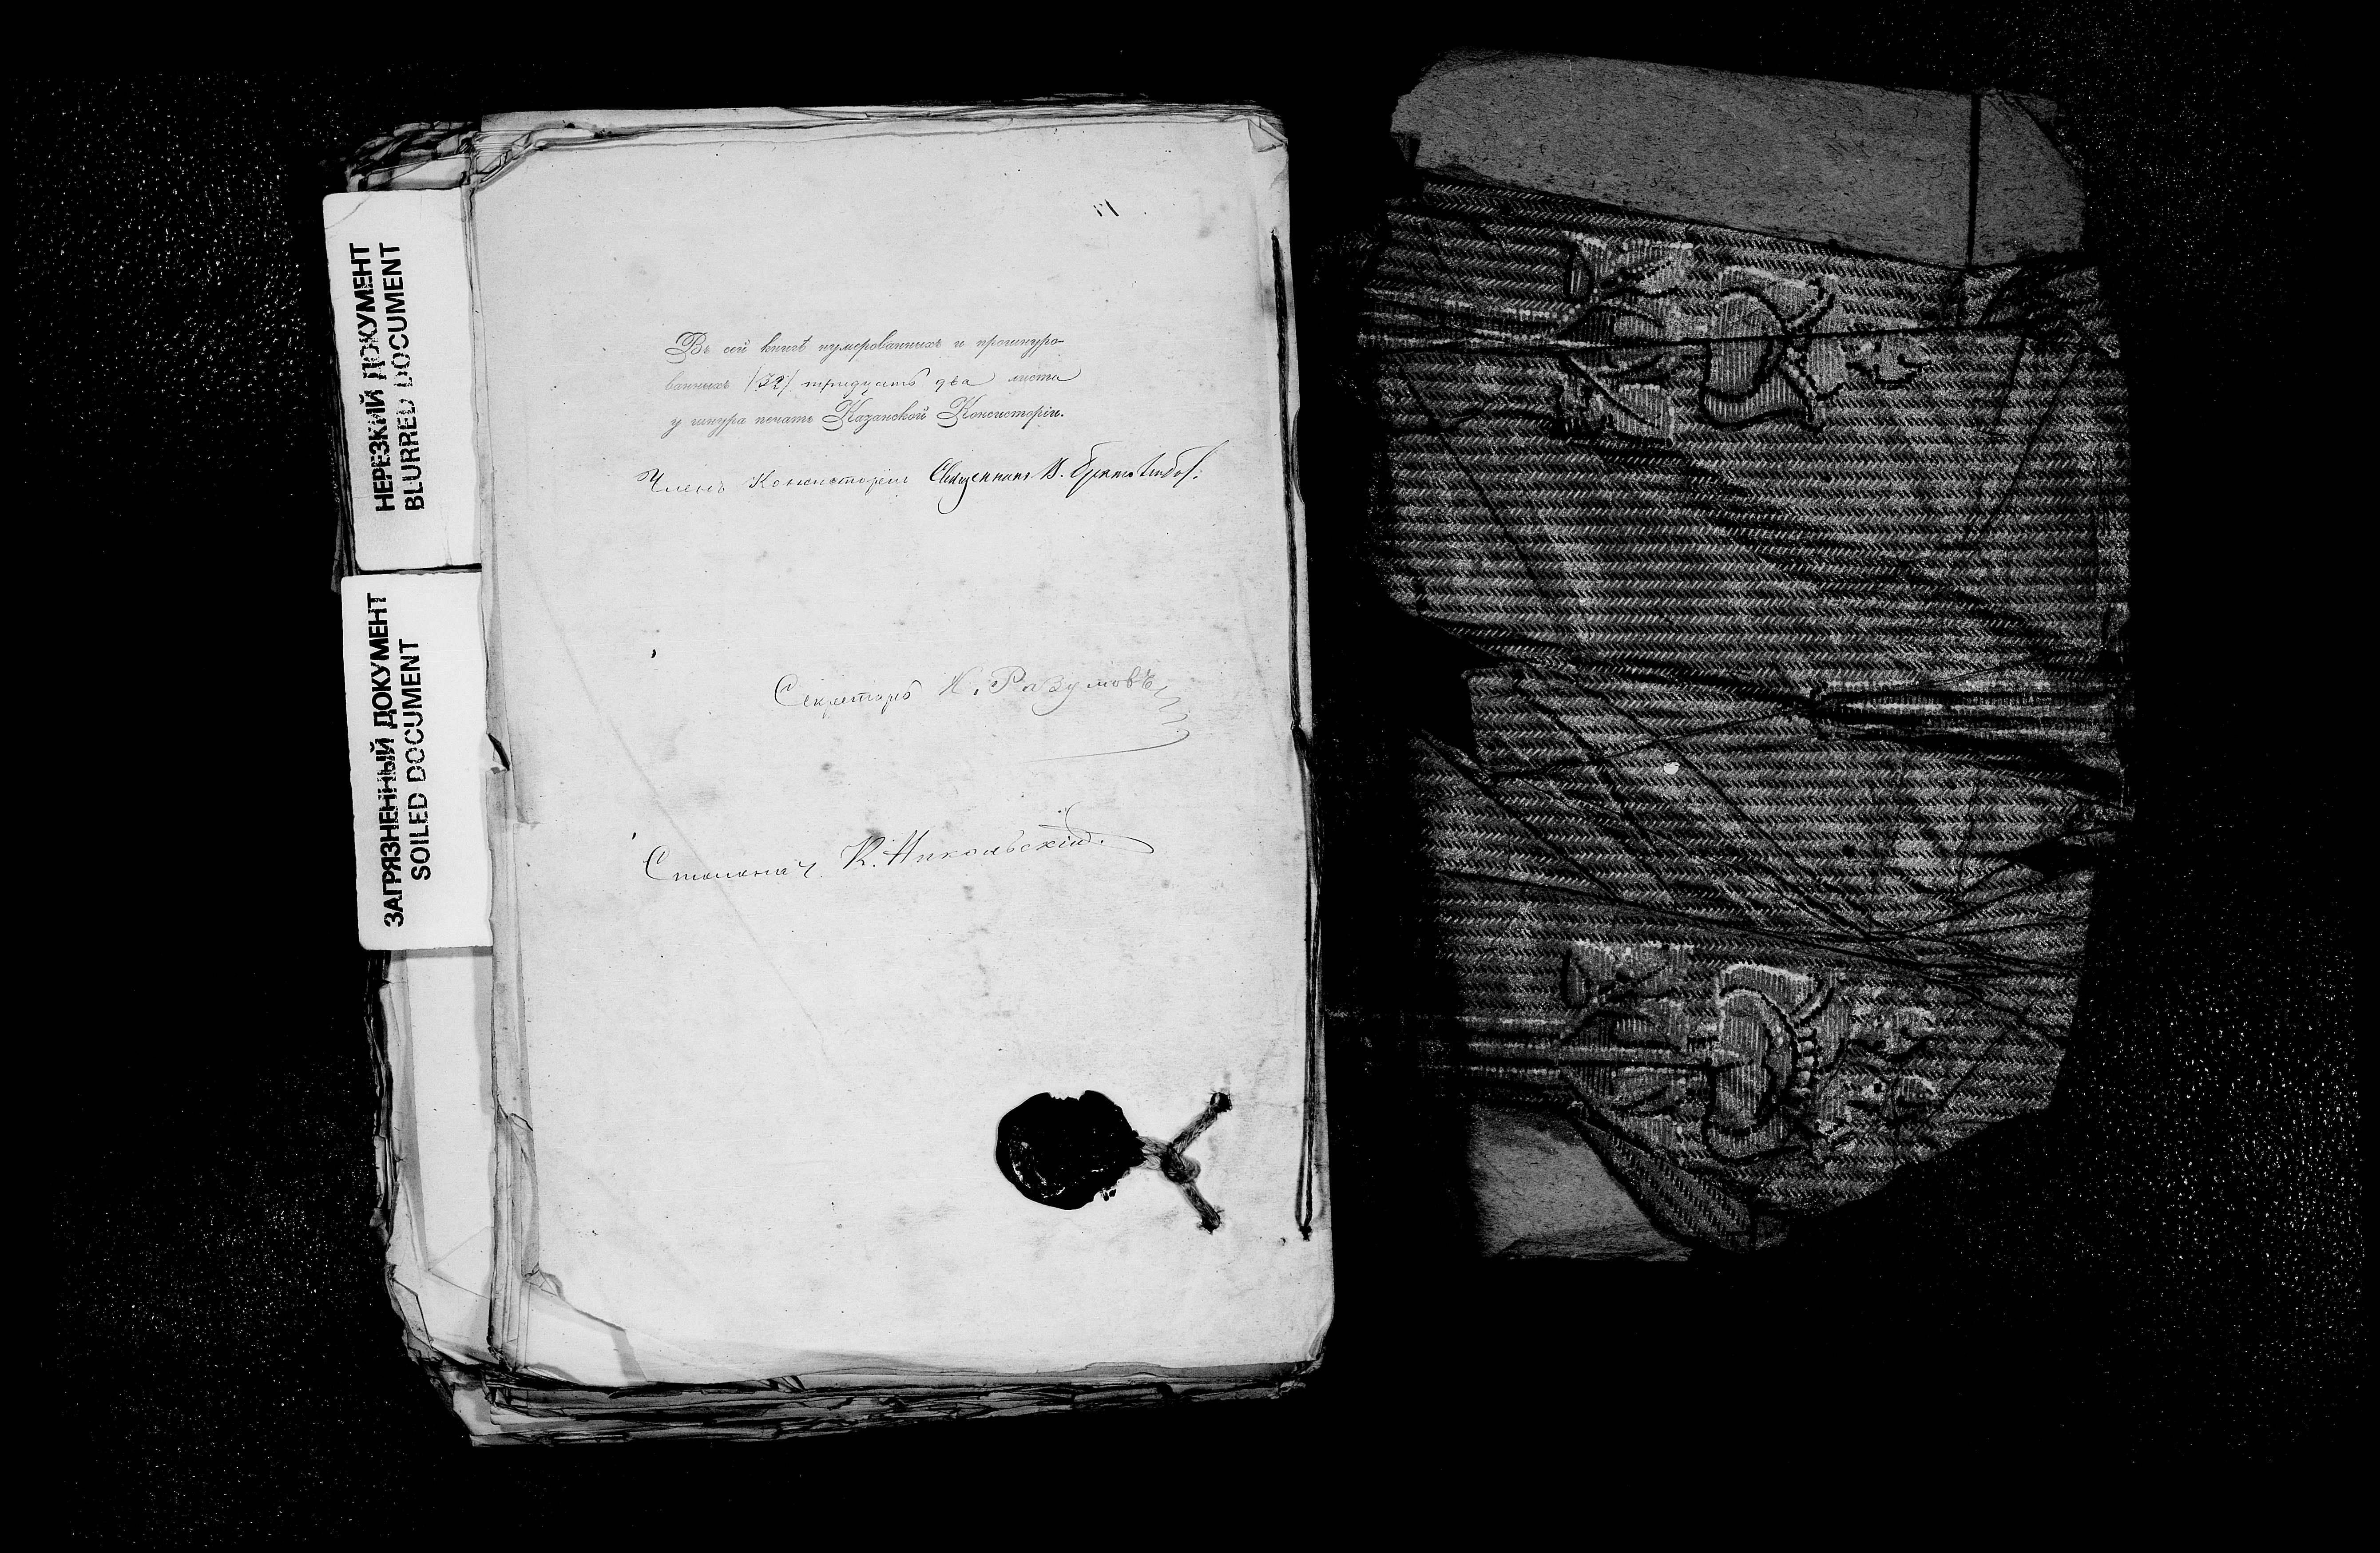 НЕРЕЗКИЙ ДОКУМЕНТ
BLURRED DOCUMENT
ЗАГРЯЗНЕННЫЙ ДОКУМЕНТ
SOILED DOCUMENT
Въ сей книгѣ нумерованныхъ и прошнуро-
ванныхъ /32/ тридцать два листа
у шнура печать Казанской Консисторіи.
Членъ Консисторіи Священникъ
Секретарь Н. Разумовъ
Столонач. К. Никольскій